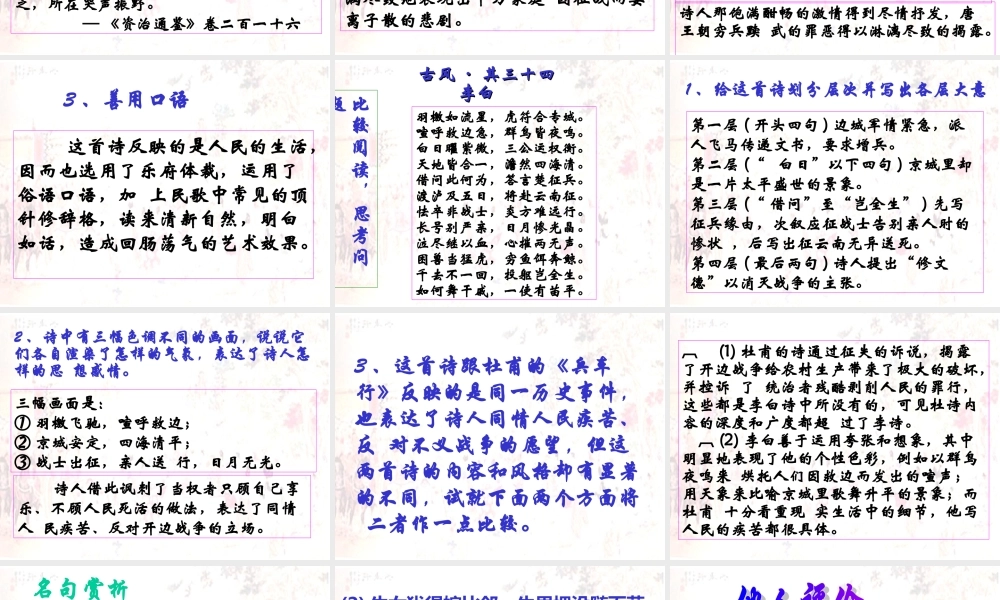 之，所在哭声振野。
—《资治通鉴》卷二百一十六
离子散的悲剧。
诗人那饱满酣畅的激情得到尽情抒发，唐
王朝穷兵黩 武的罪恶得以淋漓尽致的揭露。
3、善用口语
这首诗反映的是人民的生活，
因而也选用了乐府体裁，运用了
俗语口语，加 上民歌中常见的顶
针修辞格，读来清新自然，明白
如话，造成回肠荡气的艺术效果。
比较阅读，思考问
题
古风·其三十四
李白
羽檄如流星，虎符合专城。
喧呼救边急，群鸟皆夜鸣。
白日曜紫微，三公运权衡。
天地皆合一，澹然四海清。
借问此何为，答言楚征兵。
渡泸及五月，将赴云南征。
怯卒非战士，炎方难远行。
长号别严亲，日月惨光晶。
泣尽继以血，心摧两无声。
困兽当猛虎，穷鱼饵奔鲸。
千去不一回，投躯岂全生。
如何舞干戚，一使有苗平。
1、给这首诗划分层次并写出各层大意
第一层(开头四句)边城军情紧急，派
人飞马传递文书，要求增兵。
第二层(“ 白日”以下四句)京城里却
是一片太平盛世的景象。
第三层(“借问”至“岂全生”)先写
征兵缘由，次叙应征战士告别亲人时的
惨状 ，后写出征云南无异送死。
第四层(最后两句)诗人提出“修文
德”以消灭战争的主张。
2、诗中有三幅色调不同的画面，说说它
们各自渲染了怎样的气氛，表达了诗人怎
样的思 想感情。
三幅画面是：
① 羽檄飞驰，喧呼救边；
② 京城安定，四海清平；
③ 战士出征，亲人送 行，日月无光。
诗人借此讽刺了当权者只顾自己享
乐、不顾人民死活的做法，表达了同情
人 民疾苦、反对开边战争的立场。
3、这首诗跟杜甫的《兵车
行》反映的是同一历史事件，
也表达了诗人同情人民疾苦、
反 对不义战争的愿望，但这
两首诗的内容和风格却有显著
的不同，试就下面两个方面将
二者作一点比较。
⑴ 杜甫的诗通过征夫的诉说，揭露
了开边战争给农村生产带来了极大的破坏，
并控诉 了 统治者残酷剥削人民的罪行，
这些都是李白诗中所没有的，可见杜诗内
容的深度和广度都超 过了李诗。
⑵ 李白善于运用夸张和想象，其中
明显地表现了他的个性色彩，例如以群鸟
夜鸣来 烘托人们因救边而发出的喧声；
用天象来比喻京城里歌舞升平的景象；而
杜甫 十分看重现 实生活中的细节，他写
人民的疾苦都很具体。
名句赏析